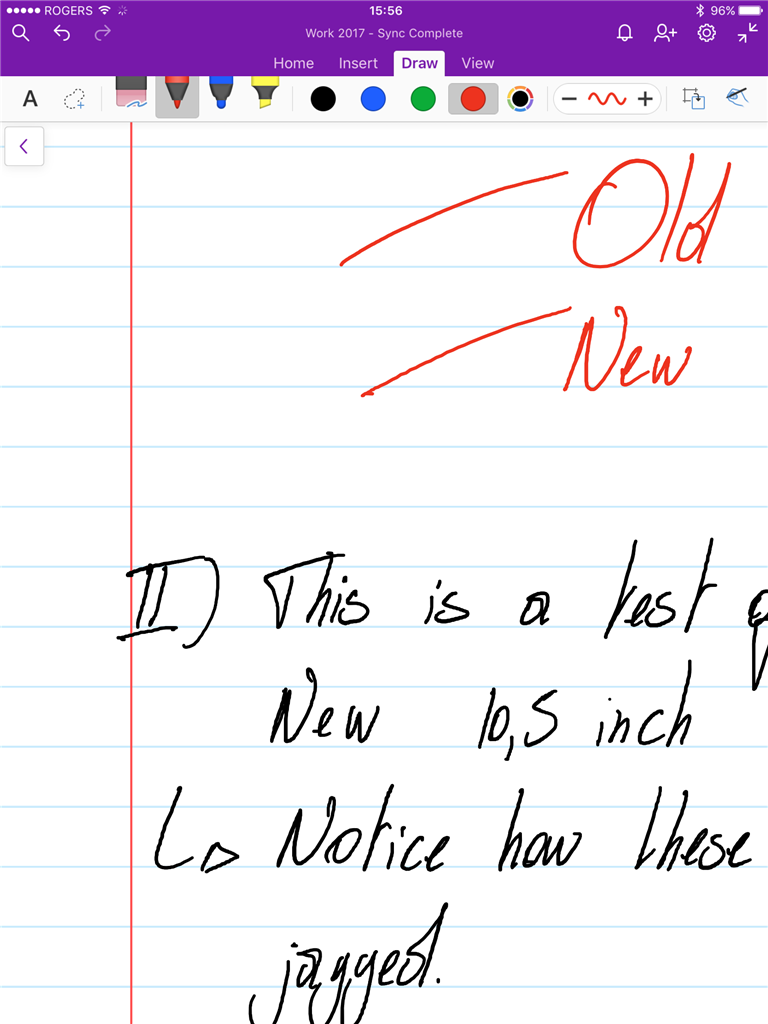 ROGERS 15:56 96%
Work 2017 - Sync Complete
Home Insert Draw View
A
Old
New
II) This is a test
New 10,5 inch
Notice how these
jagged.